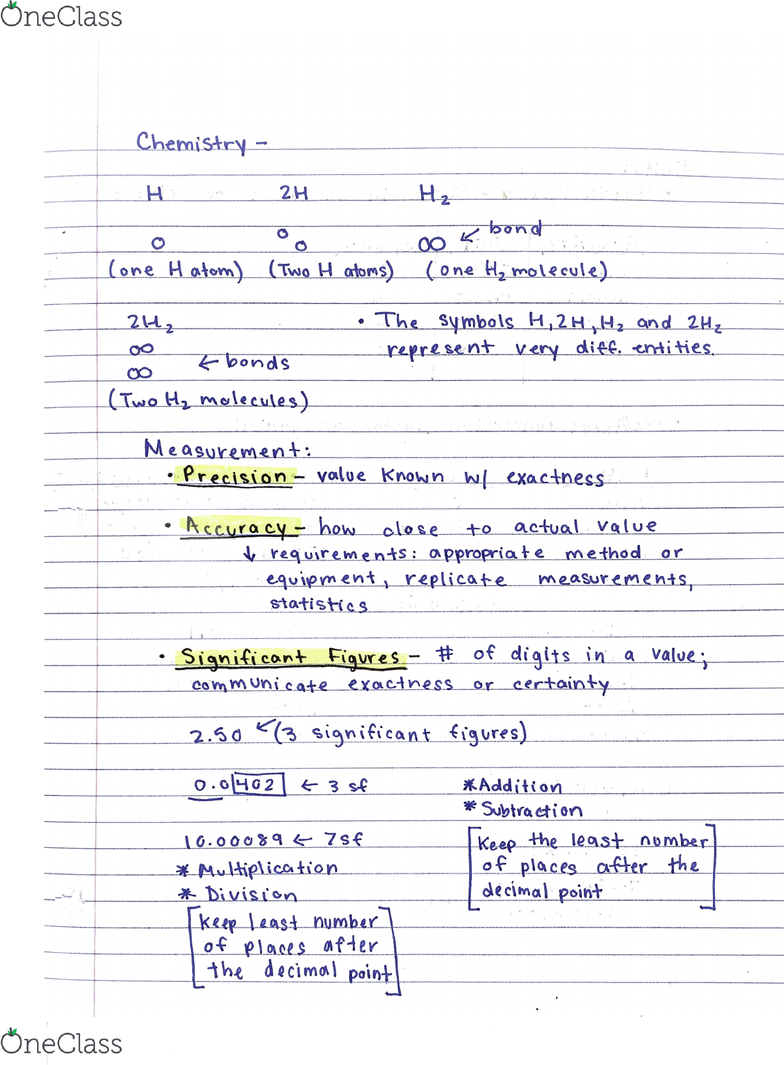 OneClass
Chemistry -
H 2H H₂
bond
(one H atom) (Two H atoms) (one H₂ molecule)
2H₂
← bonds
(Two H₂ molecules)
• The symbols H, 2H, H₂ and 2H₂
represent very diff. entities.
Measurement:
• Precision - value known w/ exactness
• Accuracy - how close to actual value
↓ requirements: appropriate method or
equipment, replicate measurements,
statistics
• Significant Figures - # of digits in a value;
communicate exactness or certainty
2.50 ↙ (3 significant figures)
0.0402 ← 3 sf
10.00089 ← 7sf
* Multiplication
* Division
[keep least number
of places after
the decimal point]
*Addition
* Subtraction
[Keep the least number
of places after the
decimal point]
OneClass